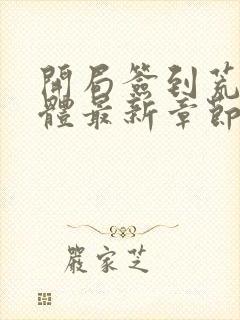 開局簽到荒
體最新章節
嚴家芝